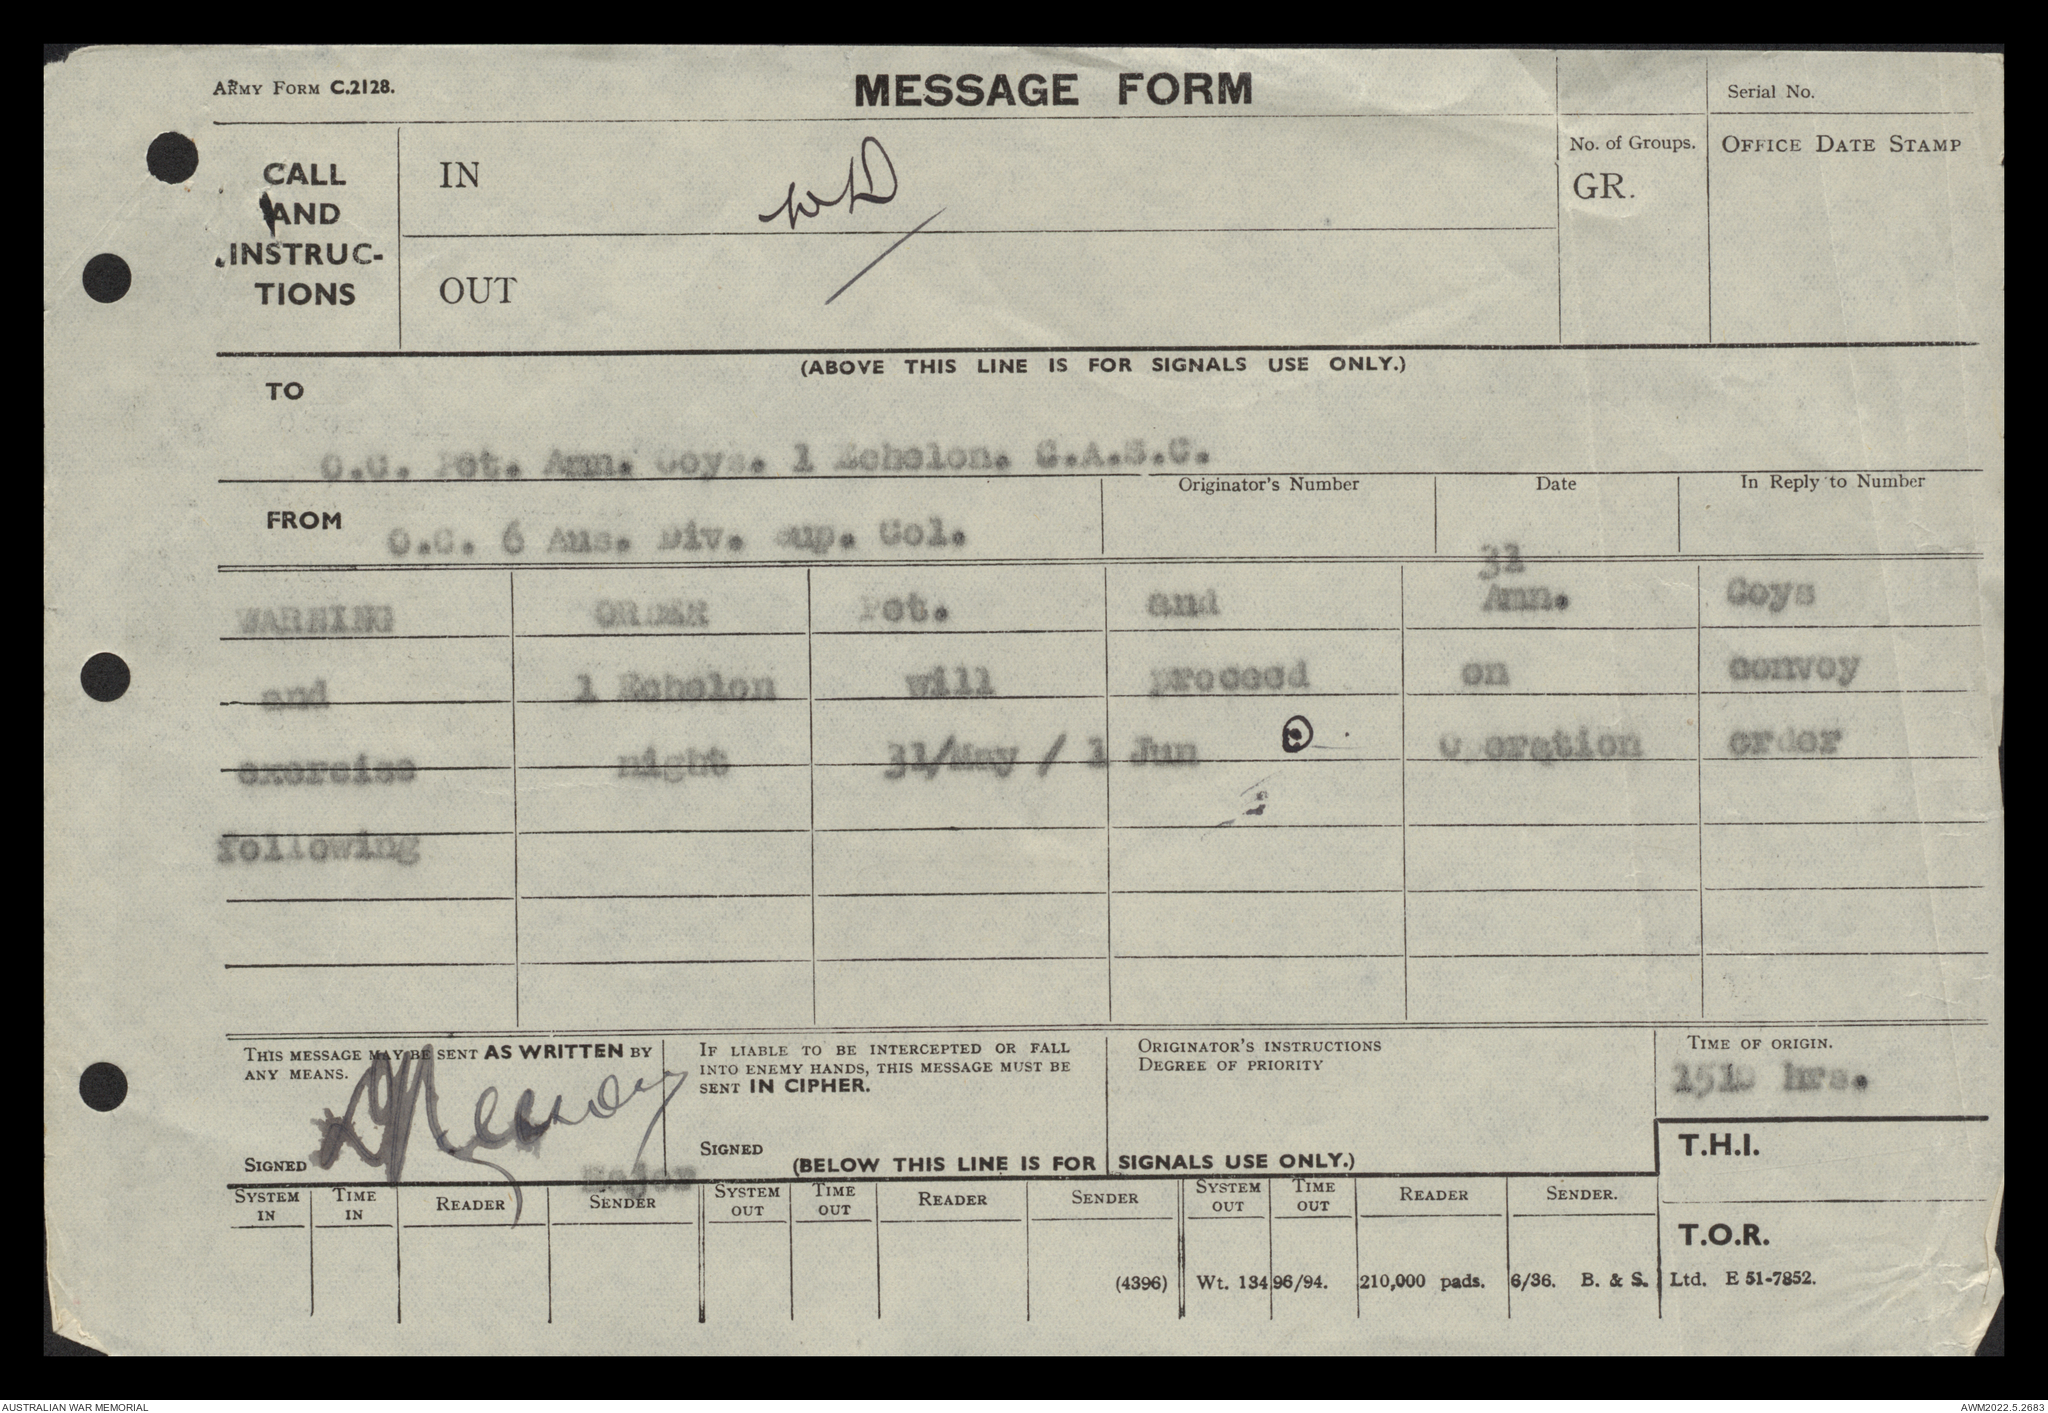 ARMY FORM C.2128.
MESSAGE FORM
Serial No.
CALL AND INSTRUC-TIONS
IN
OUT
No. of Groups.
GR.
OFFICE DATE STAMP
(ABOVE THIS LINE IS FOR SIGNALS USE ONLY.)
TO
O.C. Pet. Amn. Coys. 1 Echelon. C.A.S.C.
FROM O.C. 6 Aus. Div. Sup. Col.
Originator's Number
Date
In Reply to Number
31
WARNING ORDER Pet. and Amn. Coys
and 1 Echelon will proceed on convoy
exercise night 31/May / 1 Jun Operation order
following
THIS MESSAGE MAY BE SENT AS WRITTEN BY
ANY MEANS.
SIGNED
Major
IF LIABLE TO BE INTERCEPTED OR FALL
INTO ENEMY HANDS, THIS MESSAGE MUST BE
SENT IN CIPHER.
SIGNED
ORIGINATOR'S INSTRUCTIONS
DEGREE OF PRIORITY
TIME OF ORIGIN.
1510 hrs.
(BELOW THIS LINE IS FOR SIGNALS USE ONLY.)
T.H.I.
SYSTEM IN TIME IN READER SENDER SYSTEM OUT TIME OUT READER SENDER SYSTEM OUT TIME OUT READER SENDER.
T.O.R.
(4396) Wt. 13496/94. 210,000 pads. 6/36. B. & S. Ltd. E 51-7852.
AUSTRALIAN WAR MEMORIAL
AWM2022.5.2683